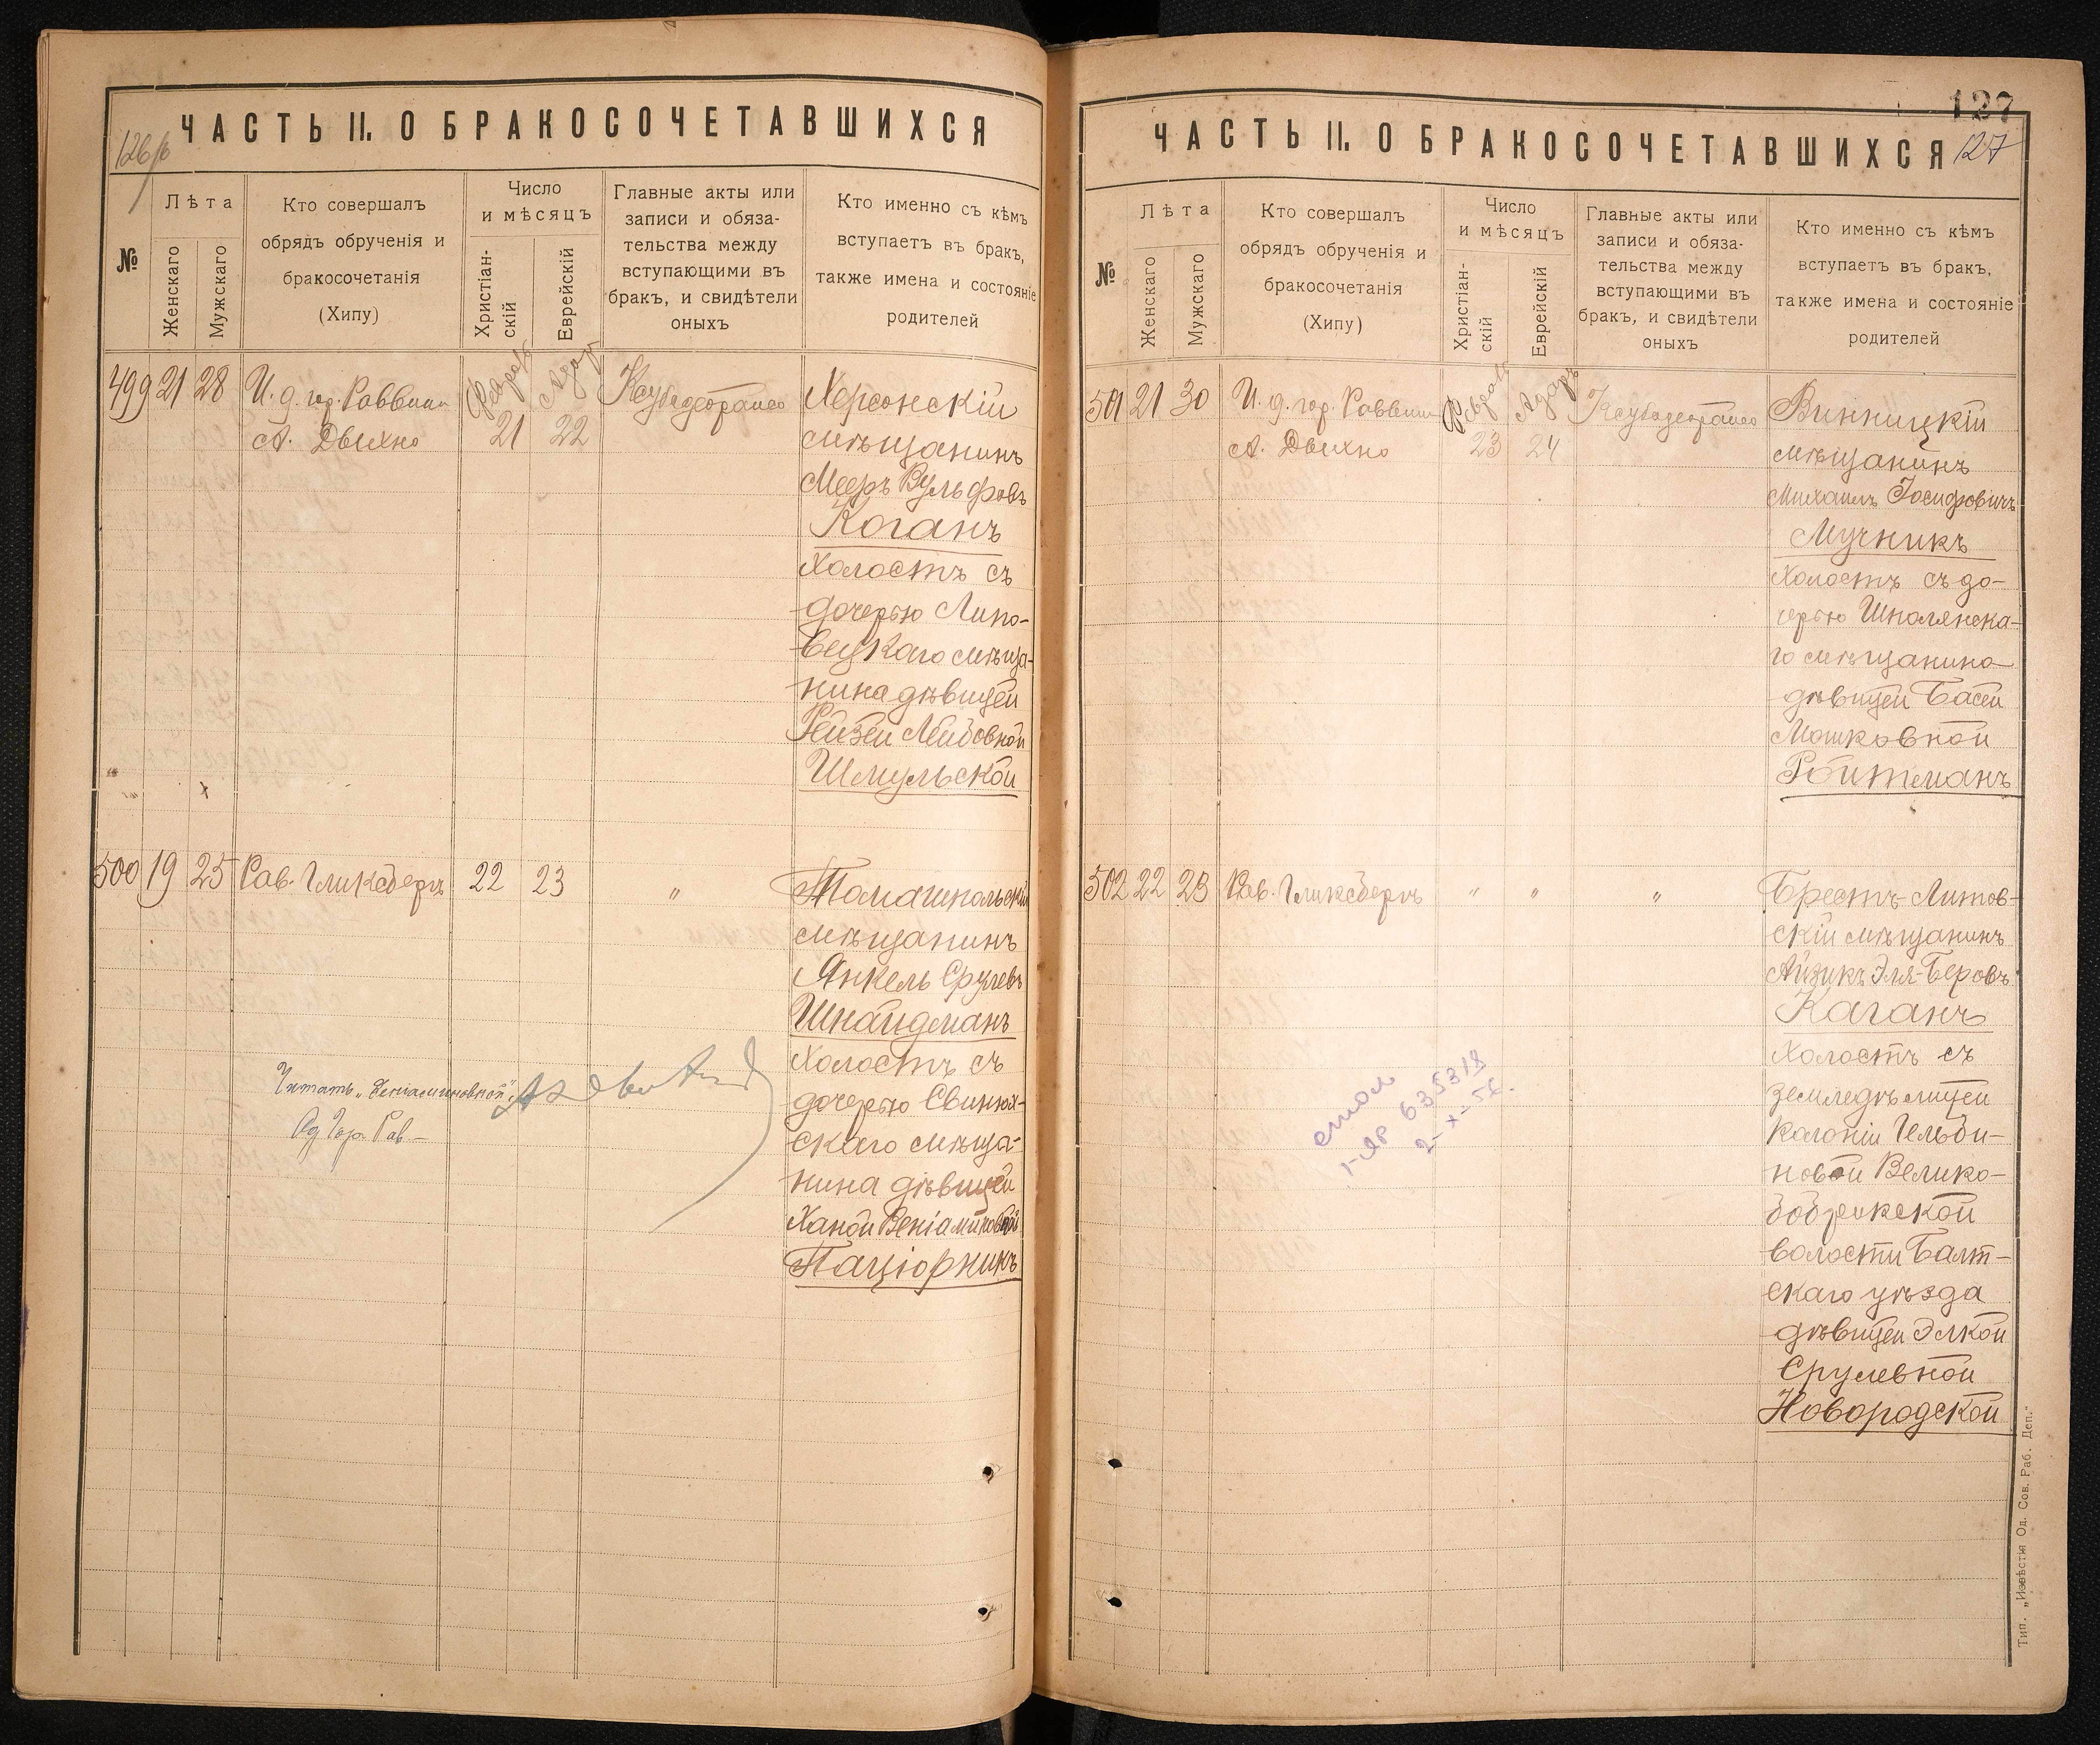 ЧАСТЬ II. О БРАКОСОЧЕТАВШИХСЯ
№
Лѣта
Женскаго
Мужскаго
Кто совершалъ
обрядъ обрученія и
бракосочетанія
(Хипу)
Число
и мѣсяцъ
Христіан-
скій
Еврейскій
Главные акты или
записи и обяза-
тельства между
вступающими въ
бракъ, и свидѣтели
оныхъ
Кто именно съ кѣмъ
вступаетъ въ бракъ,
также имена и состояніе
родителей
499 21 28
И. д. гор. Раввина
А. Двихно
Февраль
21
Адаръ
22
Херсонскій
мѣщанинъ
Мееръ Вульфовъ
Коганъ
холостъ съ
дочерью Липо-
вецкаго мѣща-
нина дѣвицей
Рейзей Лейбовной
Шмульской
500 19 25 Рав. Гликсбергъ 22 23 "
Томашпольскій
мѣщанинъ
Янкель Срулевъ
Шнайдманъ
холостъ съ
дочерью Свинюх-
скаго мѣща-
нина дѣвицей
Ханой Веніаминовной
Паціорникъ
Читать „Веніаминовной"
Од. Гор. Рав.
ЧАСТЬ II. О БРАКОСОЧЕТАВШИХСЯ
127
127
№
Лѣта
Женскаго
Мужскаго
Кто совершалъ
обрядъ обрученія и
бракосочетанія
(Хипу)
Число
и мѣсяцъ
Христіан-
скій
Еврейскій
Главные акты или
записи и обяза-
тельства между
вступающими въ
бракъ, и свидѣтели
оныхъ
Кто именно съ кѣмъ
вступаетъ въ бракъ,
также имена и состояніе
родителей
501 21 30
И. д. гор. Раввина
А. Двихно
Февраль
23
Адаръ
24
Винницкій
мѣщанинъ
Михаилъ Іосифовичъ
Мучникъ
холостъ съ до-
черью Шполянска-
го мѣщанина
дѣвицей Басей
Мошковной
Ройтманъ
502 22 28 Рав. Гликсбергъ " " "
Брестъ-Литов-
скій мѣщанинъ
Айзикъ Эля-Беровъ
Каганъ
холостъ съ
земледѣлицей
колоніи Гельби-
новой Велико-
бобрикской
волости Балт-
скаго уѣзда
дѣвицей Элкой
Срулевной
Новородской
635318
2-X-56.
Тип. „Извѣстія Од. Сов. Раб. Деп."